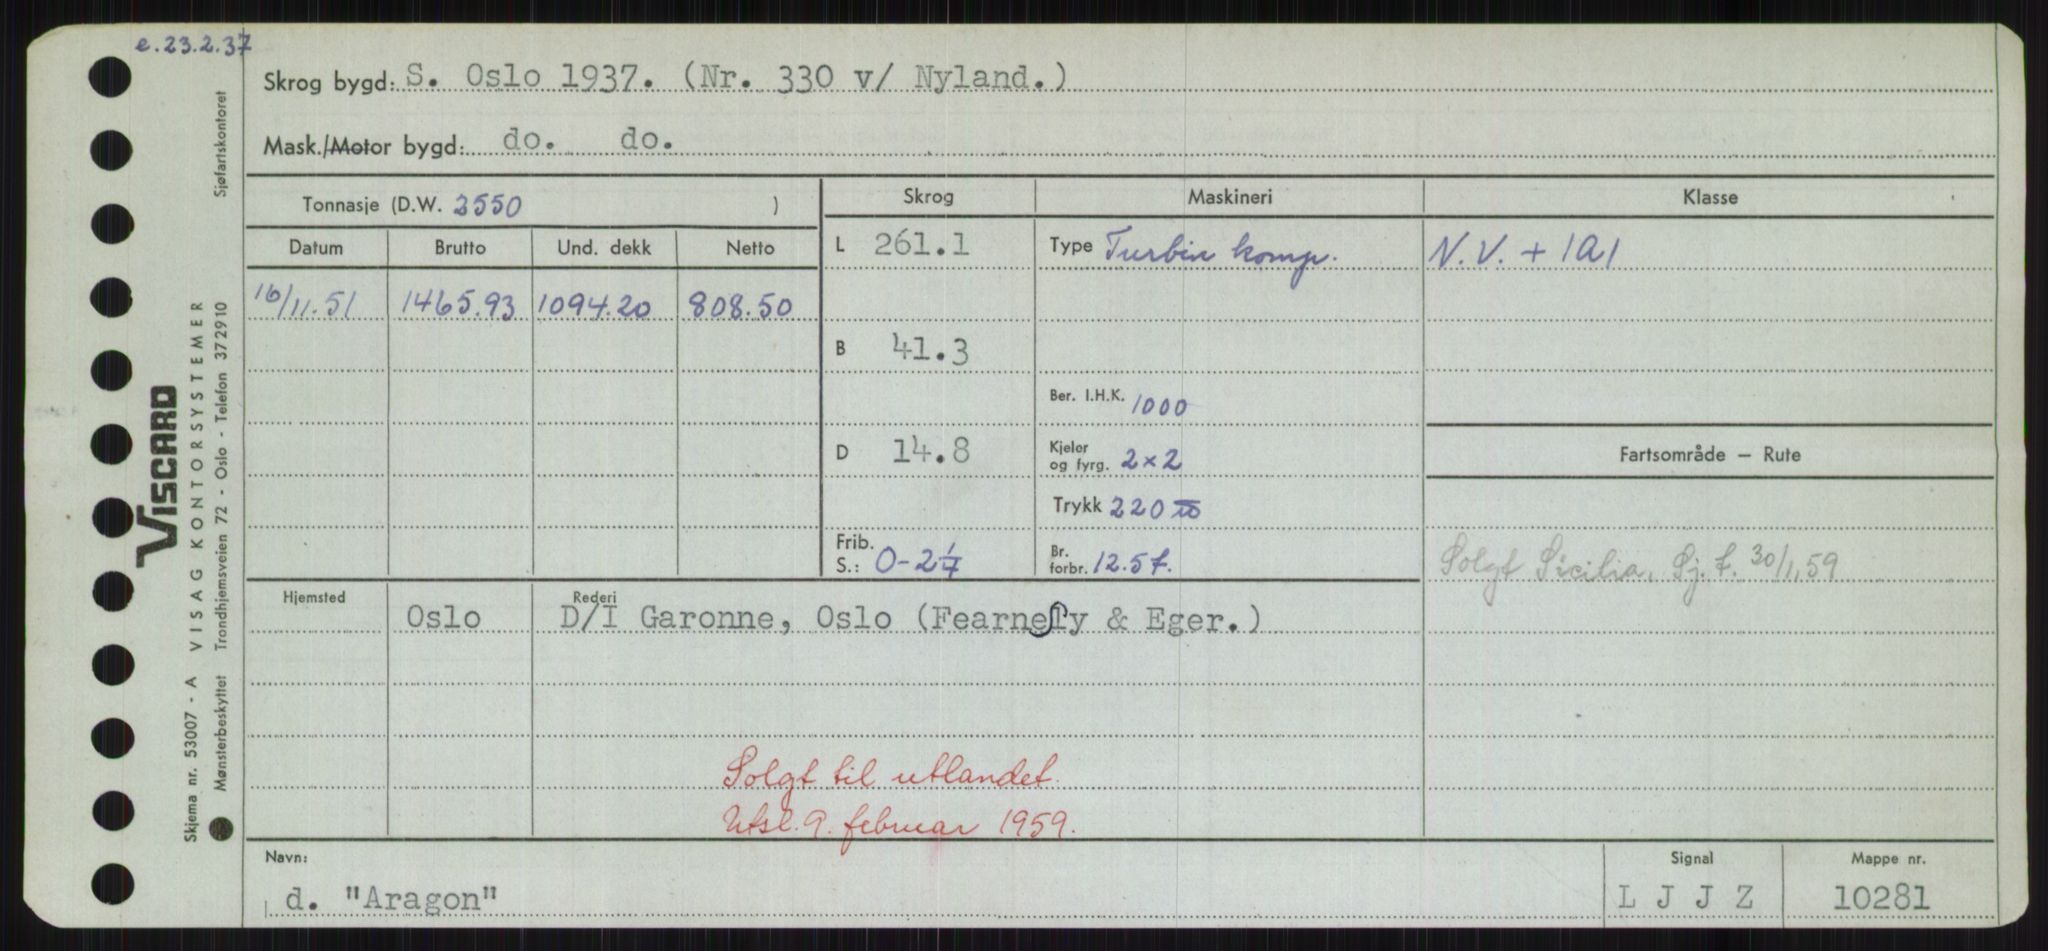 e. 23.2.37
Skrog bygd: S. Oslo 1937. (Nr. 330 v/ Nyland.)
Mask./Motor bygd: do. do.
Tonnasje (D.W. 2550 )
Skrog Maskineri Klasse
Datum Brutto Und. dekk Netto
L 261.1 Type Turbin komp. N.V. + 1A1
16/11.51 1465.93 1094.20 808.50
B 41.3
Ber. I.H.K. 1000
D 14.8 Kjeler og fyrg. 2×2
Fartsområde — Rute
Trykk 220
Frib. S.: 0-2 Br. forbr. 12.5 t.
Solgt Sicilia, Sj. f. 30/1, 59
Hjemsted Oslo Rederi D/I Garonne, Oslo (Fearnely & Eger.)
Solgt til utlandet.
Utsl. 9. februar 1959.
Navn: d. "Aragon"
Signal L J J Z
Mappe nr. 10281
VISCARD
Skjema nr. 53007 - A VISAG KONTORSYSTEMER
Mønsterbeskyttet Trondhjemsveien 72 - Oslo - Telefon 372910 Sjøfartskontoret